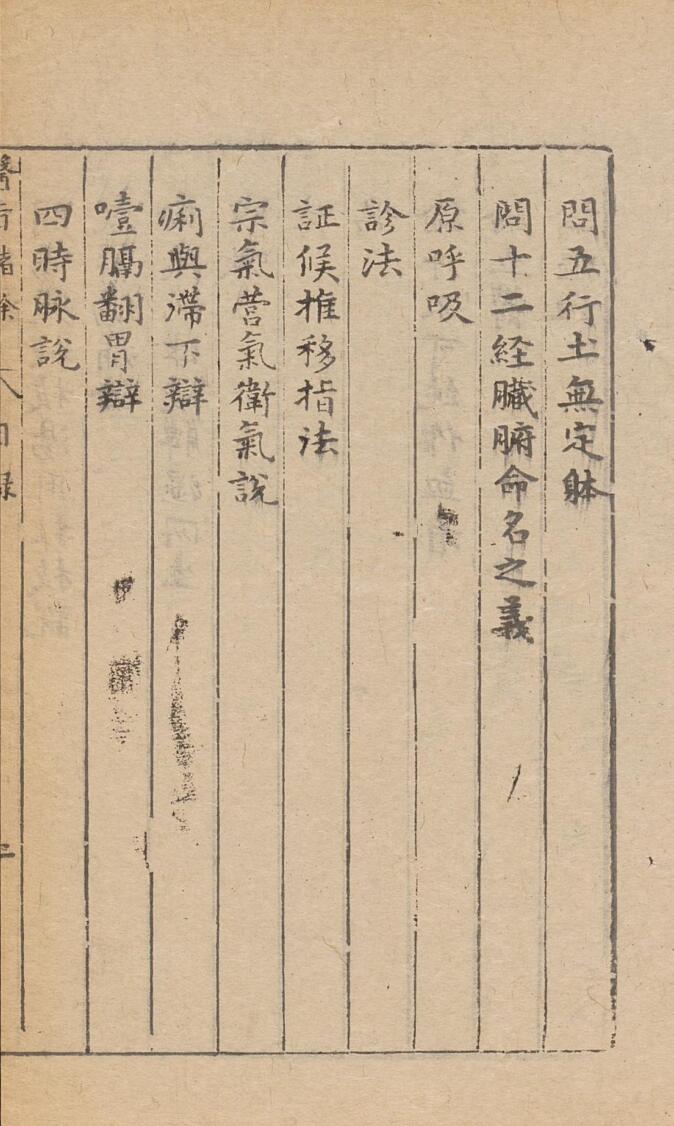 問五行土無定躰
問十二経臓腑命名之義
原呼吸
診法
証候推移指法
宗氣营氣衛氣說
痢與滯下辯
噎膈翻胃辯
四時脉說
目録
二